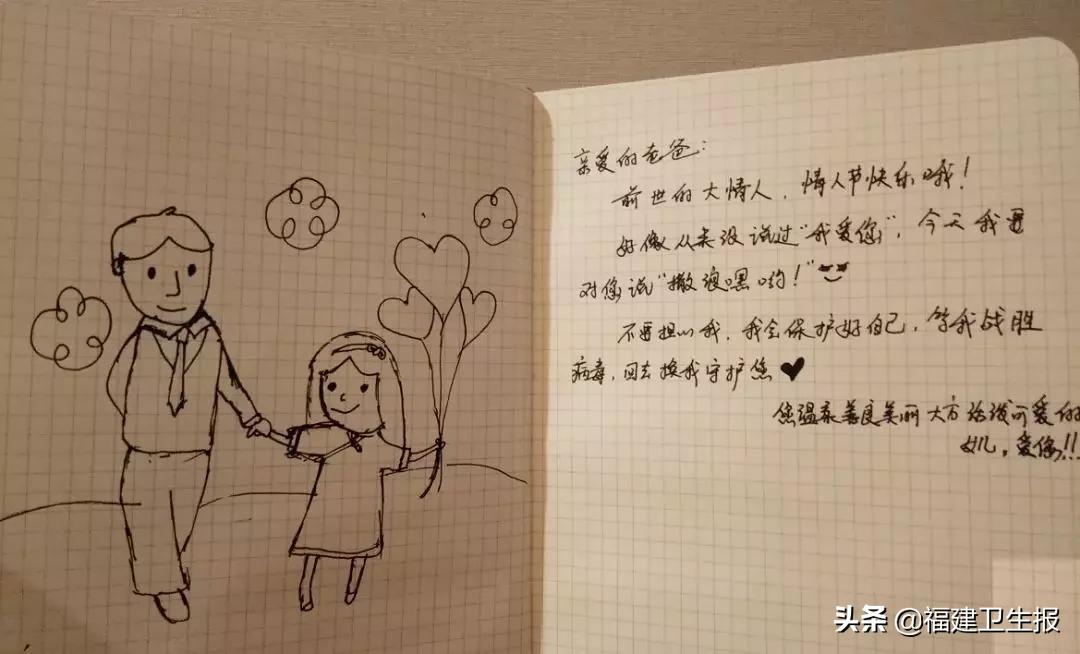 亲爱的爸爸：
前世的大情人，情人节快乐哦！
好像从来没说过“我爱您”，今天我要
对您说“撒浪嘿哟！”
不要担心我，我会保护好自己，等我战胜
病毒，回去换我守护您
您温柔善良美丽大方活泼可爱的
女儿，爱您!!
头条 @福建卫生报